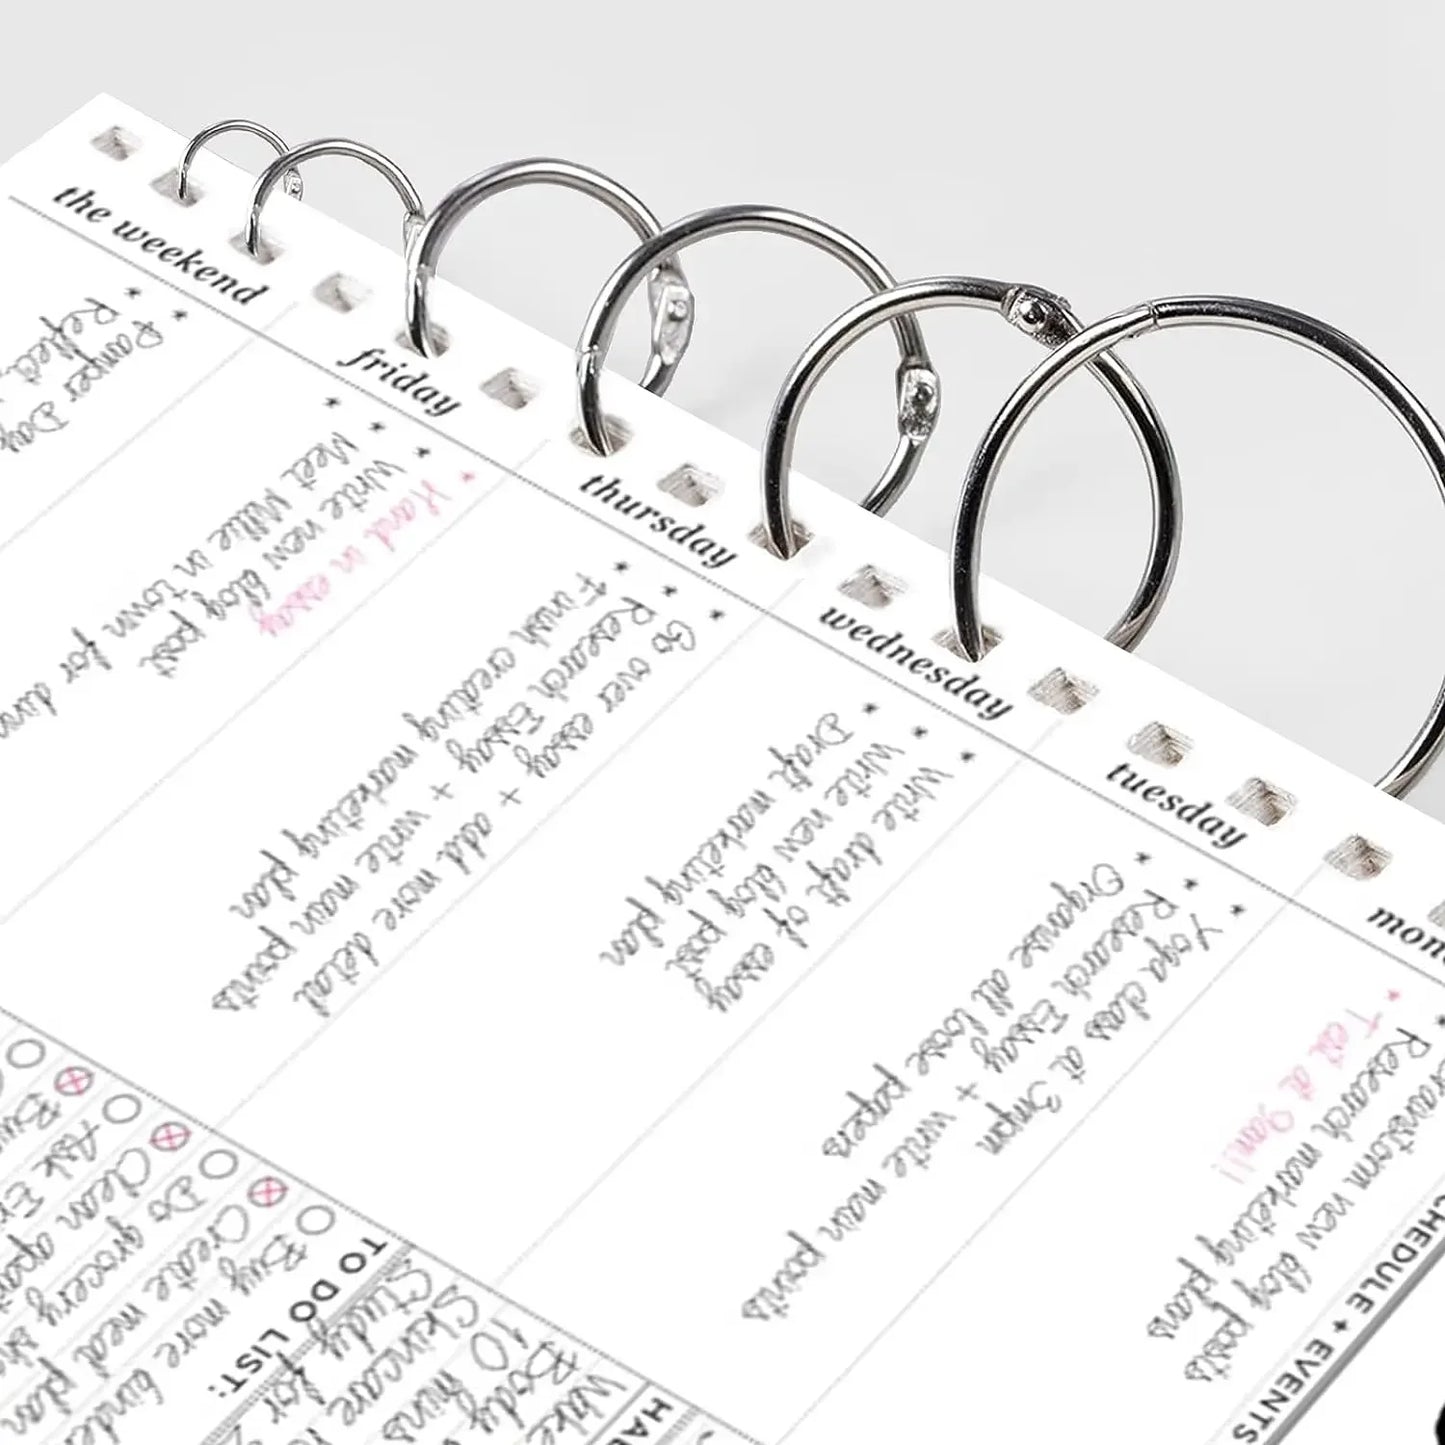 CHEDULE + EVENTS
mon
rainstorm new blog posts
* Research marketing plans
* Test at 9am!!
tuesday
* Yoga class at 3mpm
* Research Essay + write main points
* Organise all loose papers
wednesday
* Write draft of essay
* Write new blog post
* Draft marketing plan
thursday
* Go over essay + add more detail
* Research Essay + write main points
* Finish creating marketing plan
friday
* Hand in essay
* Write new blog post
* Meet Millie in town for dinn
the weekend
* Pamper Day
* Reflect
HA
Wake
Body
10 mins
Skincare
Study for
TO DO LIST:
Buy more binde
Create meal plan
Do grocery sho
Clean apart
Ask Eri
Buy